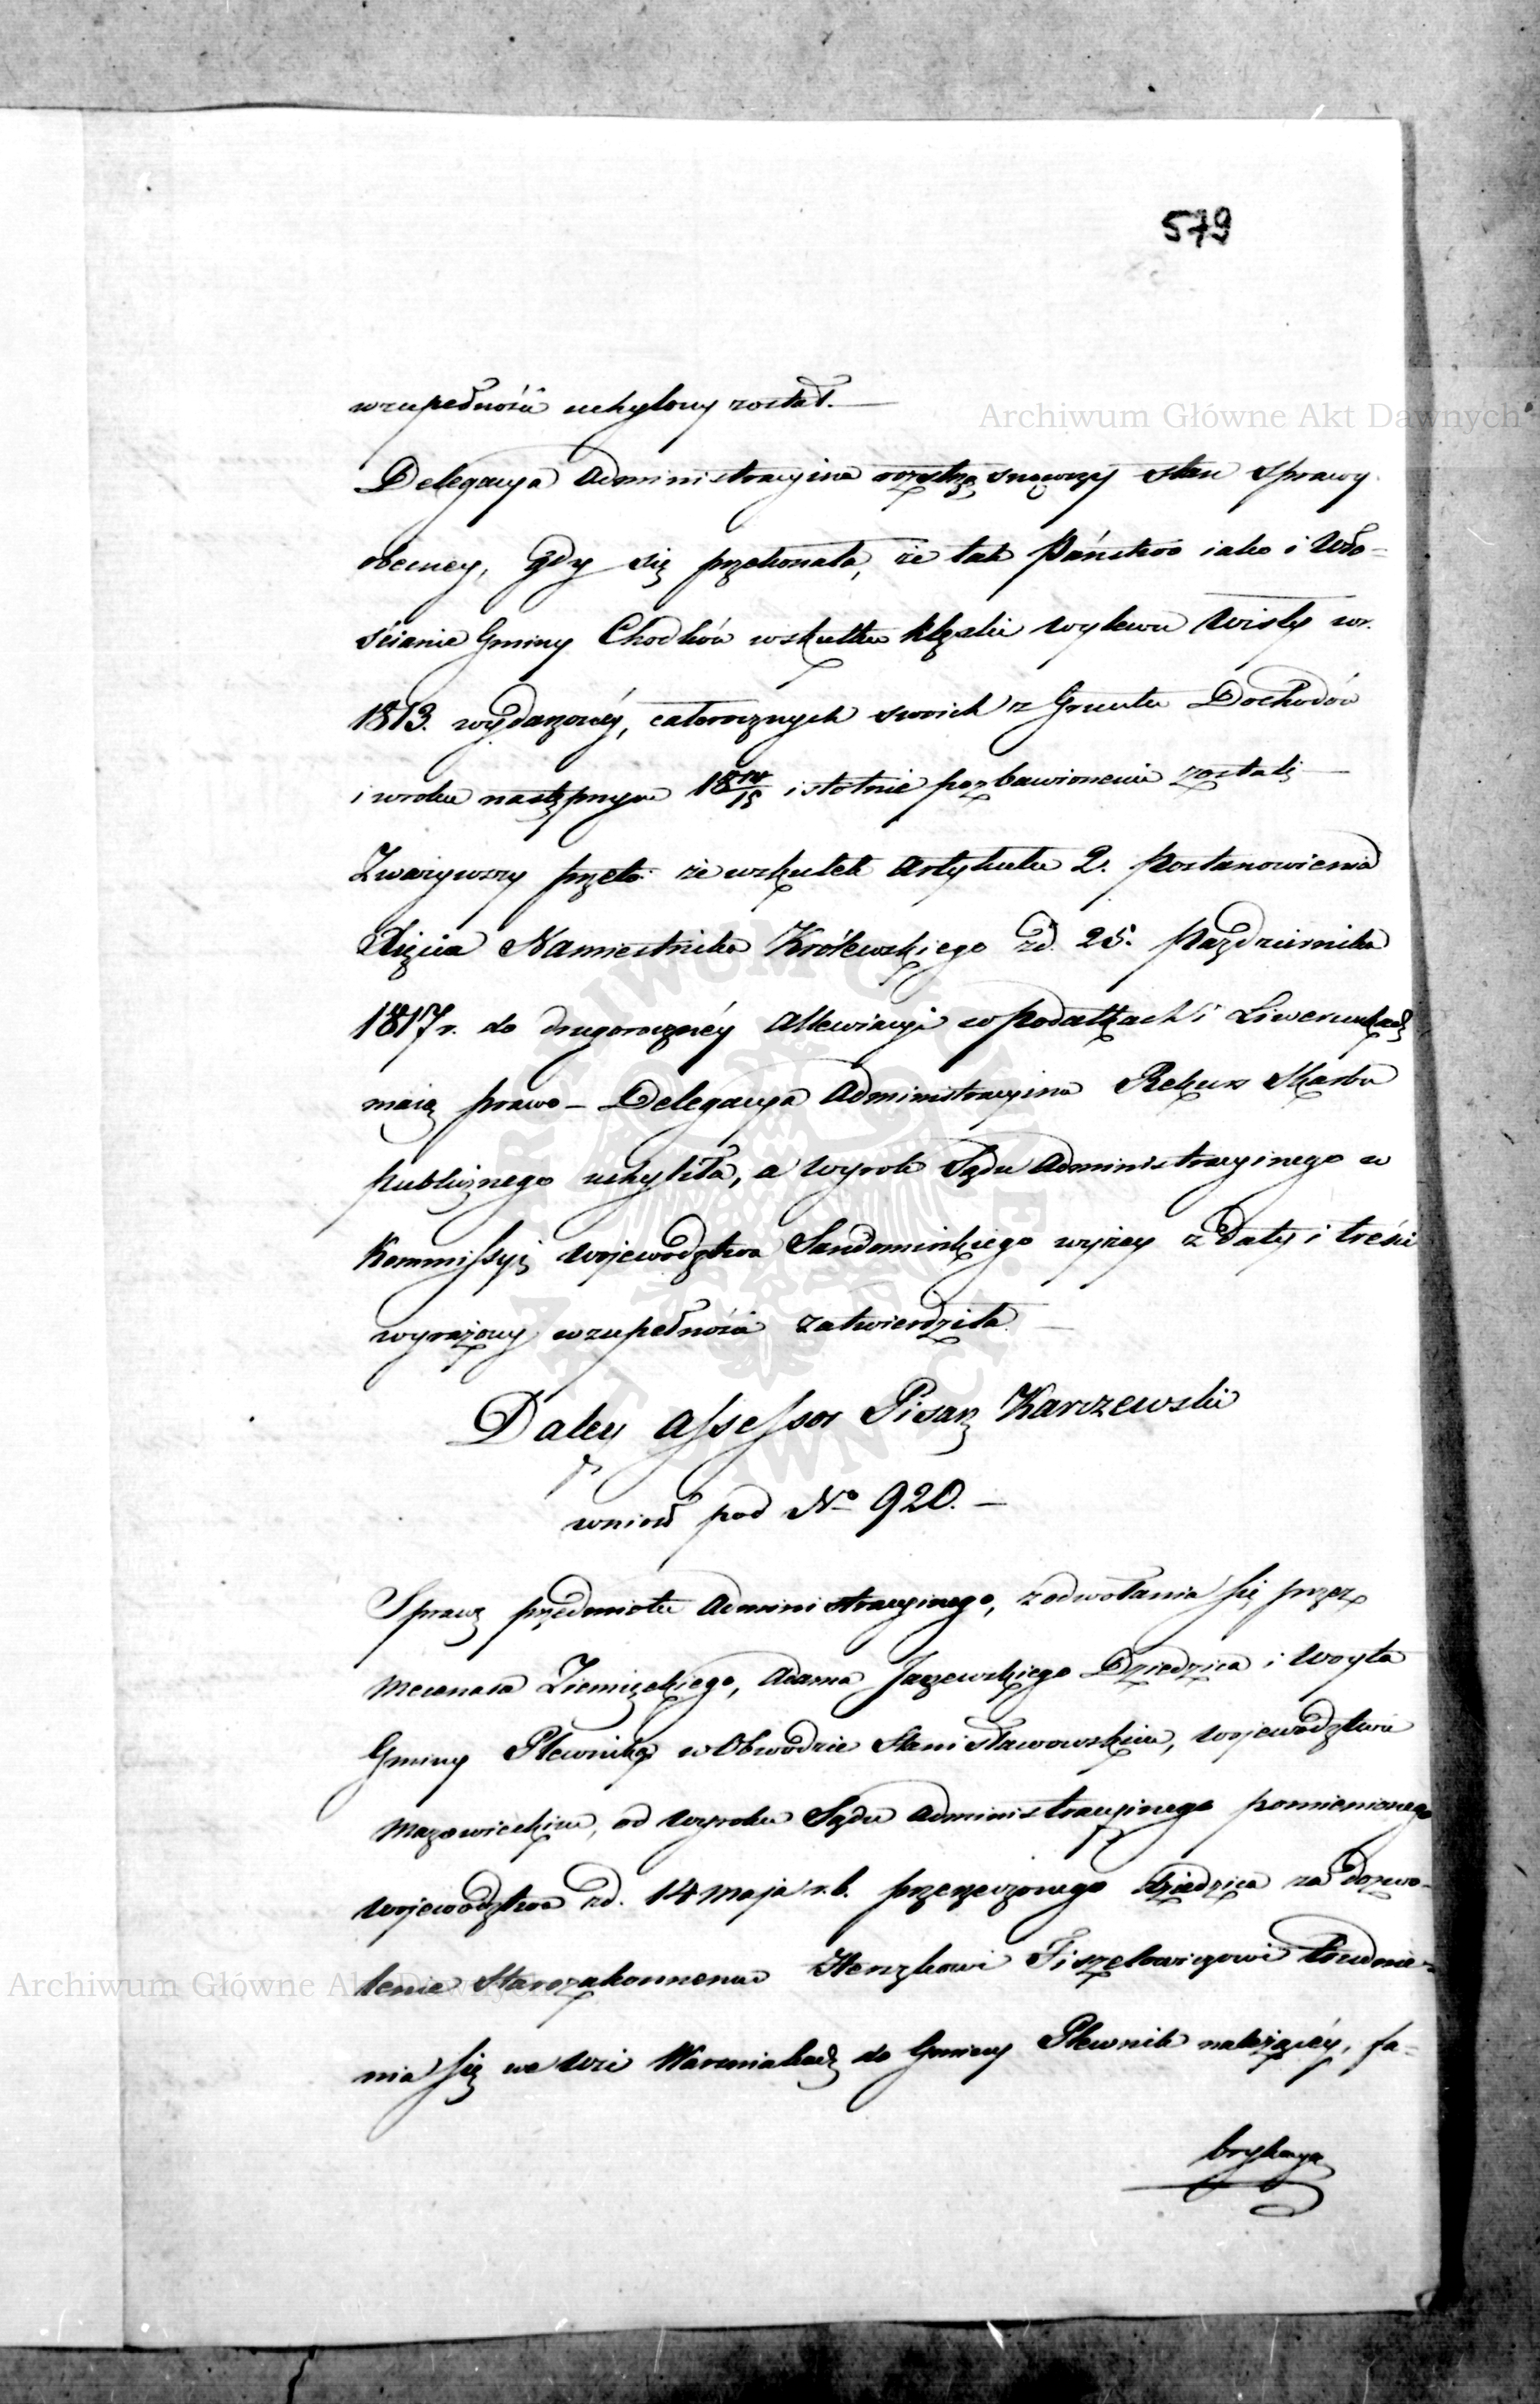 579
wzupełności uchylony został. —
Archiwum Główne Akt Dawnych
Delegacya Administracyina roztrząsnąwszy stan sprawy
obecney, gdy się przekonała, że tak Państwo iako i Wło-
ścianie Gminy Chodków wskutku klęski wylewu Wisły w r.
1813. wydarzoney, całorocznych swoich z Gruntu Dochodów
i wroku następnym 18 14/15 istotnie pozbawionemi zostali —
Zważywszy przeto że wskutek Artykułu 2. Postanowienia
Xięcia Namiestnika Królewskiego zd. 25. Października
1817 r. do drugoroczney Allewiacyi w podatkach i Liwerunkach
maią prawo — Delegacya Administracyina Rekurs Skarbu
publicznego uchyliła, a Wyrok Sądu Administracyinego w
Kommissyi Województwa Sandomirskiego wyżey z daty i treści
wyrażony wzupełności zatwierdziła. —
Daley Assessor Pisarz Karczewski
wniosł pod No 920. —
Sprawę przedmiotu Administracyinego, z odwołania się przez
Mecenasa Ziemięckiego, Adama Jaczewskiego Dziedzica i Woyta
Gminy Plewniką w Obwodzie Stanisławowskim, Województwie
Mazowieckim, od Wyroku Sądu Administracyinego pomienionego
Województwa zd. 14 Maja r. b. przerzeczonego Dziedzica za dozwo-
lenie Starozakonnemu Herszkowi Fiszelowiczowi trudnie-
Archiwum Główne Akt Dawnych
nia się we Wsi Warmiakach do Gminy Plewnik należącey, fa-
brykacyą